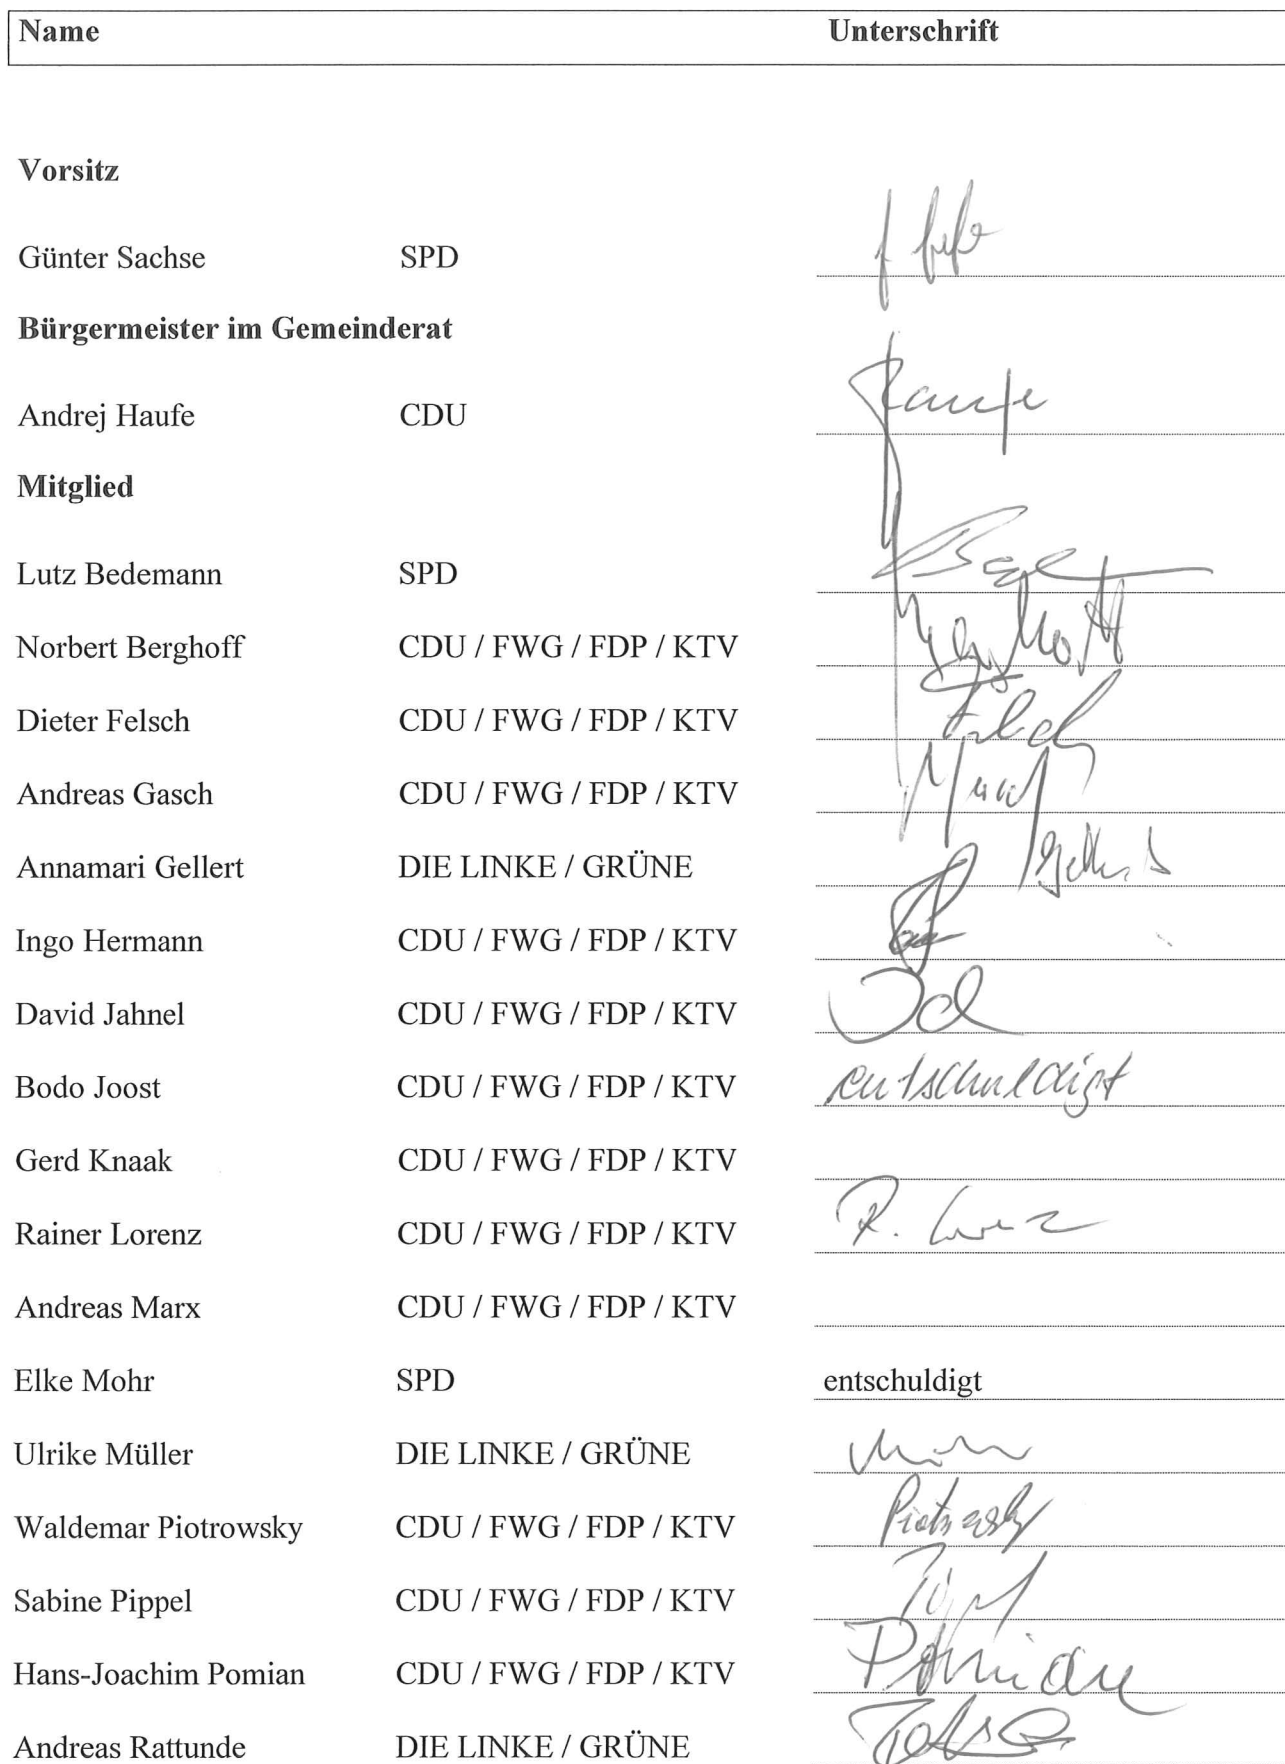 Name Unterschrift
Vorsitz
Günter Sachse SPD
Bürgermeister im Gemeinderat
Andrej Haufe CDU Haufe
Mitglied
Lutz Bedemann SPD
Norbert Berghoff CDU / FWG / FDP / KTV Berghoff
Dieter Felsch CDU / FWG / FDP / KTV
Andreas Gasch CDU / FWG / FDP / KTV
Annamari Gellert DIE LINKE / GRÜNE
Ingo Hermann CDU / FWG / FDP / KTV
David Jahnel CDU / FWG / FDP / KTV
Bodo Joost CDU / FWG / FDP / KTV entschuldigt
Gerd Knaak CDU / FWG / FDP / KTV
Rainer Lorenz CDU / FWG / FDP / KTV R. Lorenz
Andreas Marx CDU / FWG / FDP / KTV
Elke Mohr SPD entschuldigt
Ulrike Müller DIE LINKE / GRÜNE
Waldemar Piotrowsky CDU / FWG / FDP / KTV Piotrowsky
Sabine Pippel CDU / FWG / FDP / KTV
Hans-Joachim Pomian CDU / FWG / FDP / KTV Pomian
Andreas Rattunde DIE LINKE / GRÜNE